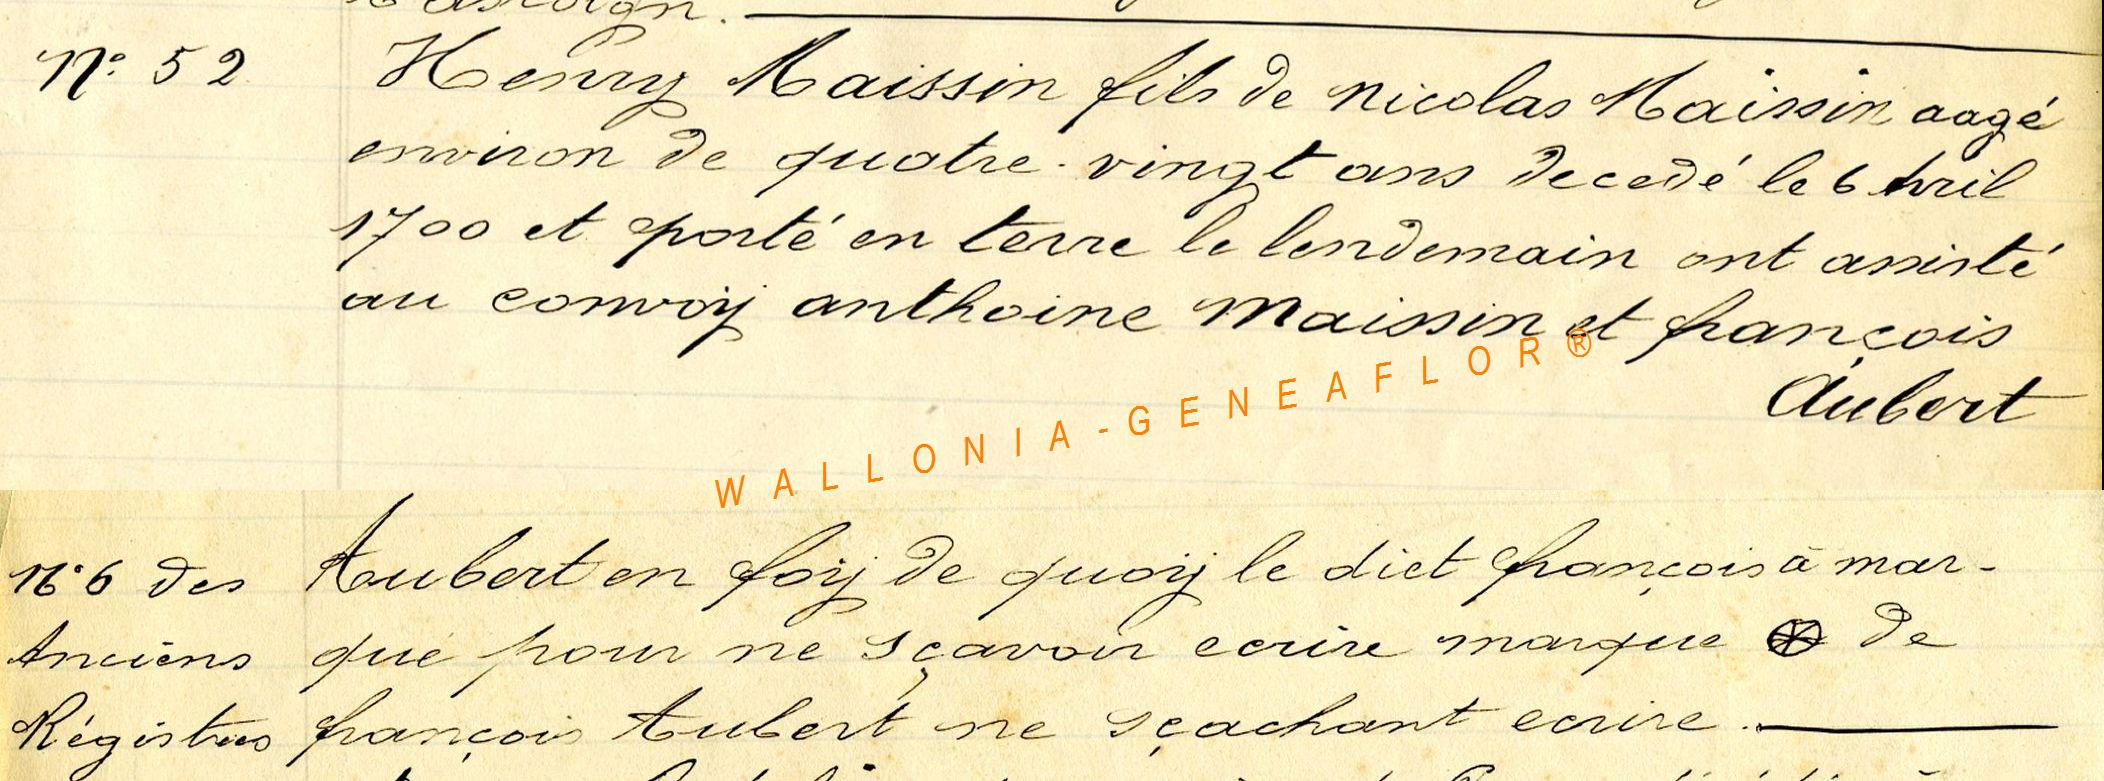 N° 52 Henry Maissin fils de Nicolas Maissin aagé
environ de quatre-vingt ans decedé le 6 Avril
1700 et porté en terre le lendemain ont assisté
au convoÿ anthoine Maissin et françois
Aubert
WALLONIA-GENEAFLOR®
N° 6 des Aubert en foÿ de quoÿ le dict françois à mar-
Anciens qué pour ne sçavoir ecrire marque de
Régistres françois Aubert ne sçachant ecrire.